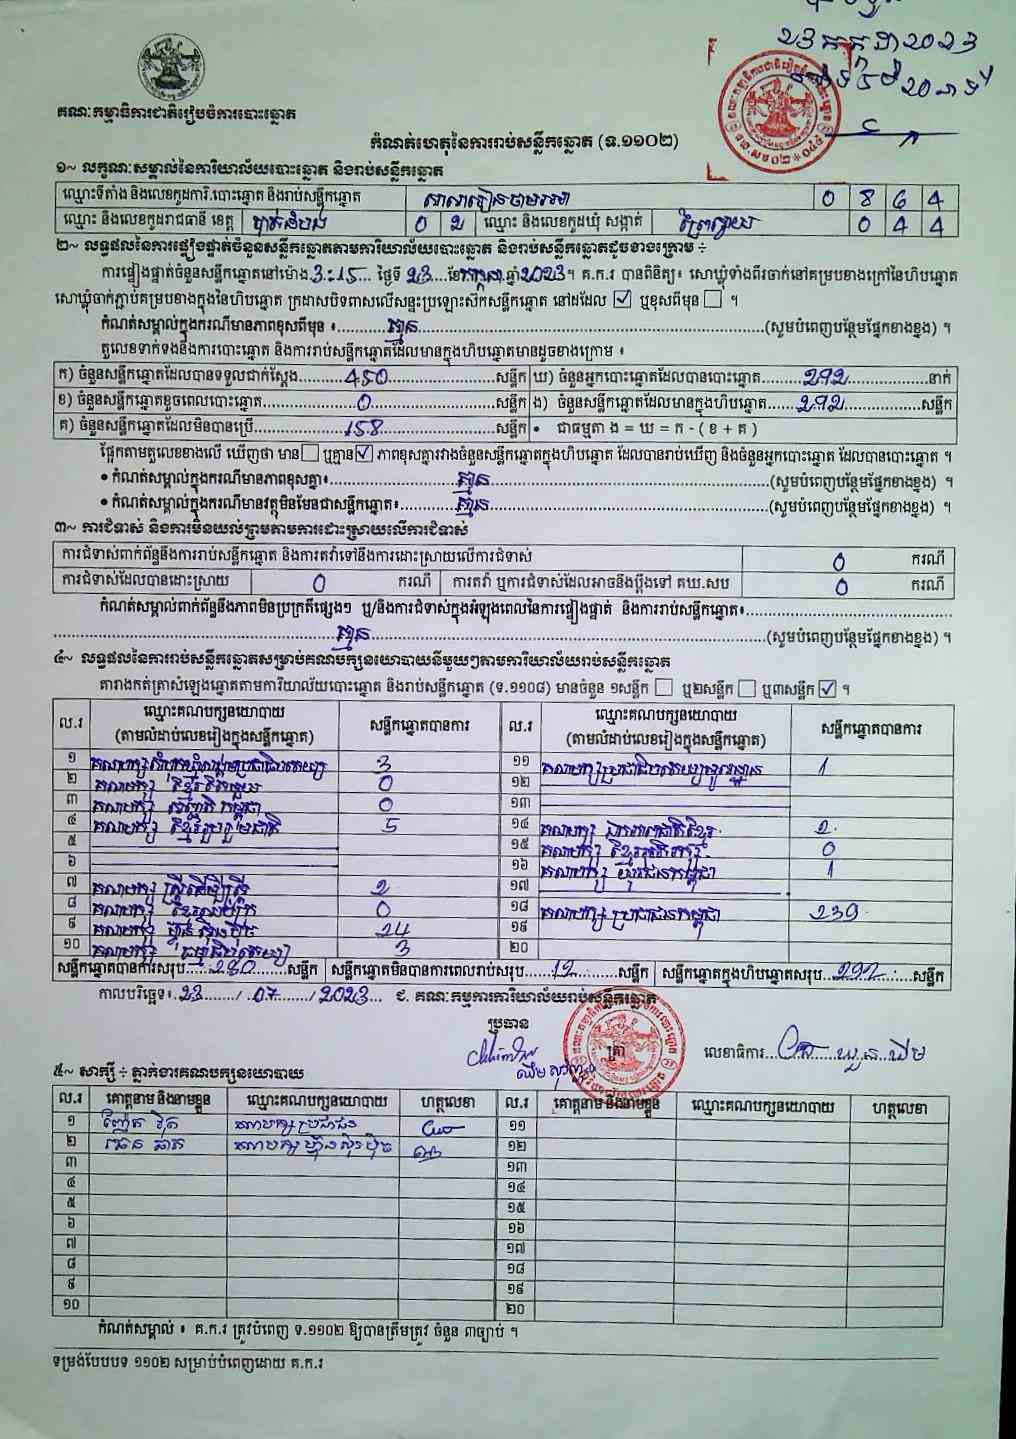 ២៣ កក្កដា ២០២៣
គណៈកម្មាធិការជាតិរៀបចំការបោះឆ្នោត
កំណត់ហេតុនៃការរាប់សន្លឹកឆ្នោត (ទ.១១០២)
១~ លក្ខណៈសម្គាល់នៃការិយាល័យបោះឆ្នោត និងរាប់សន្លឹកឆ្នោត
ឈ្មោះទីតាំង និងលេខកូដការិ.បោះឆ្នោត និងរាប់សន្លឹកឆ្នោត 0 8 6 4
ឈ្មោះ និងលេខកូដរាជធានី ខេត្ត បាត់ដំបង 0 2 ឈ្មោះ និងលេខកូដឃុំ សង្កាត់ ព្រៃស្វាយ 0 4 4
២~ លទ្ធផលនៃការផ្ទៀងផ្ទាត់ចំនួនសន្លឹកឆ្នោតតាមការិយាល័យបោះឆ្នោត និងរាប់សន្លឹកឆ្នោតដូចខាងក្រោម ÷
ការផ្ទៀងផ្ទាត់ចំនួនសន្លឹកឆ្នោតនៅម៉ោង 3:15 ថ្ងៃទី 23 ខែ កក្កដា ឆ្នាំ 2023 ។ គ.ក.រ បានពិនិត្យ៖ សោឃ្លុំទាំងពីរចាក់នៅគម្របខាងក្រៅនៃហិបឆ្នោត
សោឃ្លុំចាក់ភ្ជាប់គម្របខាងក្នុងនៃហិបឆ្នោត ក្រដាសបិទពាសលើសន្ទះប្រឡោះសឹកសន្លឹកឆ្នោត នៅដដែល ☑ ឬខុសពីមុន ☐ ។
កំណត់សម្គាល់ក្នុងករណីមានភាពខុសពីមុន ៖ គ្មាន (សូមបំពេញបន្ថែមផ្នែកខាងខ្នង) ។
តួលេខទាក់ទងនឹងការបោះឆ្នោត និងការរាប់សន្លឹកឆ្នោតដែលមានក្នុងហិបឆ្នោតមានដូចខាងក្រោម ៖
ក) ចំនួនសន្លឹកឆ្នោតដែលបានទទួលជាក់ស្តែង 450 សន្លឹក ឃ) ចំនួនអ្នកបោះឆ្នោតដែលបានបោះឆ្នោត 292 នាក់
ខ) ចំនួនសន្លឹកឆ្នោតខូចពេលបោះឆ្នោត 0 សន្លឹក ង) ចំនួនសន្លឹកឆ្នោតដែលមានក្នុងហិបឆ្នោត 292 សន្លឹក
គ) ចំនួនសន្លឹកឆ្នោតដែលមិនបានប្រើ 158 សន្លឹក • ជាធម្មតា ង = ឃ = ក - ( ខ + គ )
ផ្អែកតាមតួលេខខាងលើ ឃើញថា មាន ☐ ឬគ្មាន ☑ ភាពខុសគ្នារវាងចំនួនសន្លឹកឆ្នោតក្នុងហិបឆ្នោត ដែលបានរាប់ឃើញ និងចំនួនអ្នកបោះឆ្នោត ដែលបានបោះឆ្នោត ។
• កំណត់សម្គាល់ក្នុងករណីមានភាពខុសគ្នា៖ គ្មាន (សូមបំពេញបន្ថែមផ្នែកខាងខ្នង) ។
• កំណត់សម្គាល់ក្នុងករណីមានវត្ថុមិនមែនជាសន្លឹកឆ្នោត៖ គ្មាន (សូមបំពេញបន្ថែមផ្នែកខាងខ្នង) ។
៣~ ការជំទាស់ និងការមិនយល់ព្រមតាមការដោះស្រាយលើការជំទាស់
ការជំទាស់ពាក់ព័ន្ធនឹងការរាប់សន្លឹកឆ្នោត និងការតវ៉ាទៅនឹងការដោះស្រាយលើការជំទាស់ 0 ករណី
ការជំទាស់ដែលបានដោះស្រាយ 0 ករណី ការតវ៉ា ឬការជំទាស់ដែលអាចនឹងប្តឹងទៅ គឃ.សប 0 ករណី
កំណត់សម្គាល់ពាក់ព័ន្ធនឹងភាពមិនប្រក្រតីផ្សេងៗ ឬ/និងការជំទាស់ក្នុងអំឡុងពេលនៃការផ្ទៀងផ្ទាត់ និងការរាប់សន្លឹកឆ្នោត៖
គ្មាន (សូមបំពេញបន្ថែមផ្នែកខាងខ្នង) ។
៤~ លទ្ធផលនៃការរាប់សន្លឹកឆ្នោតសម្រាប់គណបក្សនយោបាយនីមួយៗតាមការិយាល័យរាប់សន្លឹកឆ្នោត
តារាងកត់ត្រាសំឡេងឆ្នោតតាមការិយាល័យបោះឆ្នោត និងរាប់សន្លឹកឆ្នោត (ទ.១១០៨) មានចំនួន ១សន្លឹក ☐ ឬ២សន្លឹក ☐ ឬ៣សន្លឹក ☑ ។
ល.រ ឈ្មោះគណបក្សនយោបាយ (តាមលំដាប់លេខរៀងក្នុងសន្លឹកឆ្នោត) សន្លឹកឆ្នោតបានការ ល.រ ឈ្មោះគណបក្សនយោបាយ (តាមលំដាប់លេខរៀងក្នុងសន្លឹកឆ្នោត) សន្លឹកឆ្នោតបានការ
១ គណបក្សសំបុកឃ្មុំសង្គមប្រជាធិបតេយ្យ 3 ១១ គណបក្សប្រជាធិបតេយ្យមូលដ្ឋាន 1
២ គណបក្ស ខ្មែរតែមួយ 0 ១២
៣ គណបក្ស សញ្ជាតិ កម្ពុជា 0 ១៣
៤ គណបក្ស ខ្មែររួបរួមជាតិ 5 ១៤ គណបក្ស ឯកភាពជាតិខ្មែរ 2
៥ ១៥ គណបក្ស ខ្មែរអភិរក្ស 0
៦ ១៦ គណបក្ស យុវជនកម្ពុជា 1
៧ គណបក្ស ស្ត្រីដើម្បីស្ត្រី 2 ១៧
៨ គណបក្ស 0 ១៨ គណបក្ស ប្រជាជនកម្ពុជា 239
៩ គណបក្ស ហ្វ៊ុនស៊ិនប៉ិច 24 ១៩
១០ គណបក្ស ធម្មាធិបតេយ្យ 3 ២០
សន្លឹកឆ្នោតបានការសរុប 280 សន្លឹក សន្លឹកឆ្នោតមិនបានការពេលរាប់សរុប 12 សន្លឹក សន្លឹកឆ្នោតក្នុងហិបឆ្នោតសរុប 292 សន្លឹក
កាលបរិច្ឆេទ៖ 23 / 07 / 2023 ជ. គណៈកម្មការការិយាល័យរាប់សន្លឹកឆ្នោត
ប្រធាន
ត្រា
លេខាធិការ
៥~ សាក្សី ÷ ភ្នាក់ងារគណបក្សនយោបាយ
ល.រ គោត្តនាម និងនាមខ្លួន ឈ្មោះគណបក្សនយោបាយ ហត្ថលេខា ល.រ គោត្តនាម និងនាមខ្លួន ឈ្មោះគណបក្សនយោបាយ ហត្ថលេខា
១ គណបក្ស ប្រជាជន ១១
២ គណបក្ស ហ្វ៊ុនស៊ិនប៉ិច ១២
៣ ១៣
៤ ១៤
៥ ១៥
៦ ១៦
៧ ១៧
៨ ១៨
៩ ១៩
១០ ២០
កំណត់សម្គាល់ ៖ គ.ក.រ ត្រូវបំពេញ ទ.១១០២ ឱ្យបានត្រឹមត្រូវ ចំនួន ៣ច្បាប់ ។
ទម្រង់បែបបទ ១១០២ សម្រាប់បំពេញដោយ គ.ក.រ